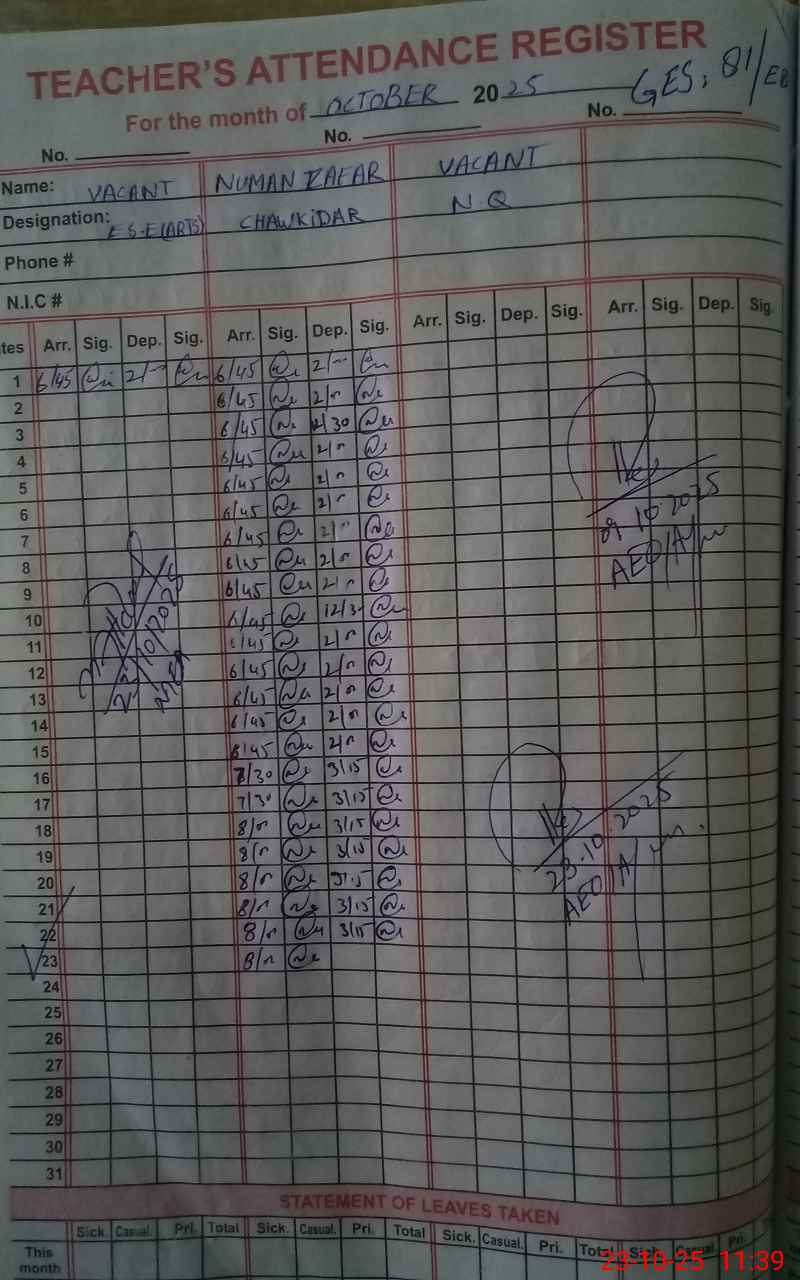 TEACHER'S ATTENDANCE REGISTER
For the month of OCTOBER 2025 GES: 81/EB
No. No. No.
Name: VACANT NUMAN ZAFAR VACANT
Designation: E.S.E(ARTS) CHAWKIDAR N.Q
Phone #
N.I.C #
tes Arr. Sig. Dep. Sig. Arr. Sig. Dep. Sig. Arr. Sig. Dep. Sig. Arr. Sig. Dep. Sig.
1 6/45 2/- 6/45 2/-
2 6/45 2/-
3 6/45 2/30
4 6/45 2/-
5 6/45 2/-
6 6/45 2/-
7 6/45 2/-
8 6/45 2/-
9 6/45 2/-
10 6/45 12/30
11 6/45 2/-
12 6/45 2/-
13 6/45 2/-
14 6/45 2/-
15 6/45 2/-
16 7/30 3/15
17 7/30 3/15
18 8/- 3/15
19 8/- 3/15
20 8/- 3/15
21 8/- 3/15
22 8/- 3/15
23 8/-
24
25
26
27
28
29
30
31
09.10.2025
AEO
23.10.2025
AEO
STATEMENT OF LEAVES TAKEN
Sick. Casual. Pri. Total Sick. Casual. Pri. Total Sick. Casual. Pri. Total Sick. Casual. Pri.
This month
23-10-25 11:39